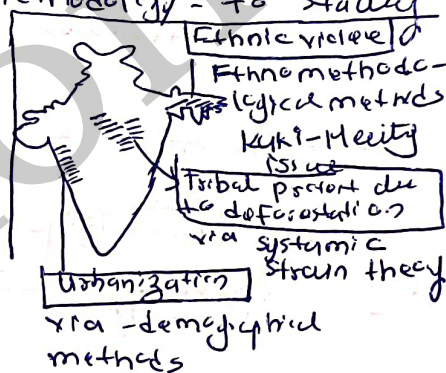 - to study
Ethnic violence
Ethnomethodo-
logical methods
Kuki-Meeity
issue
Tribal protest due
to deforestation
via systemic
strain theory
Urbanization
via - demographical
methods